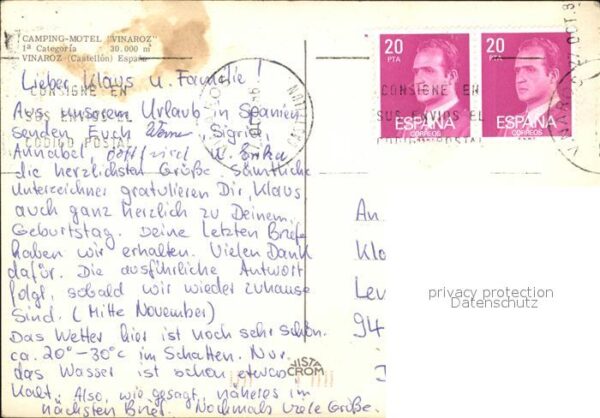 CAMPING-MOTEL "VINAROZ"
1ª Categoría 30.000 m²
VINAROZ (Castellón) España
Lieber Klaus u. Familie!
Aus unserem Urlaub in Spanien
senden Euch Sigrid,
Annabel, Gottfried u. Erika
die herzlichsten Grüße. Sämtliche
Unterzeichner gratulieren Dir, Klaus
auch ganz herzlich zu Deinem
Geburtstag. Deine letzten Briefe
haben wir erhalten. Vielen Dank
dafür. Die ausführliche Antwort
folgt, sobald wir wieder zuhause
sind. (Mitte November)
Das Wetter hier ist noch sehr schön.
ca. 20°-30°C im Schatten. Nur
das Wasser ist schon etwas
kalt. Also, wie gesagt, näheres im
nächsten Brief. Nochmals viele Grüße.
CONSIGNE EN
SUS ENVIOS EL
CODIGO POSTAL
20
PTA
ESPAÑA
CORREOS
20
PTA
ESPAÑA
CORREOS
CONSIGNE EN
SUS ENVIOS EL
CODIGO POSTAL
VISTA
CROM
An
Klo
Lev
94
privacy protection
Datenschutz